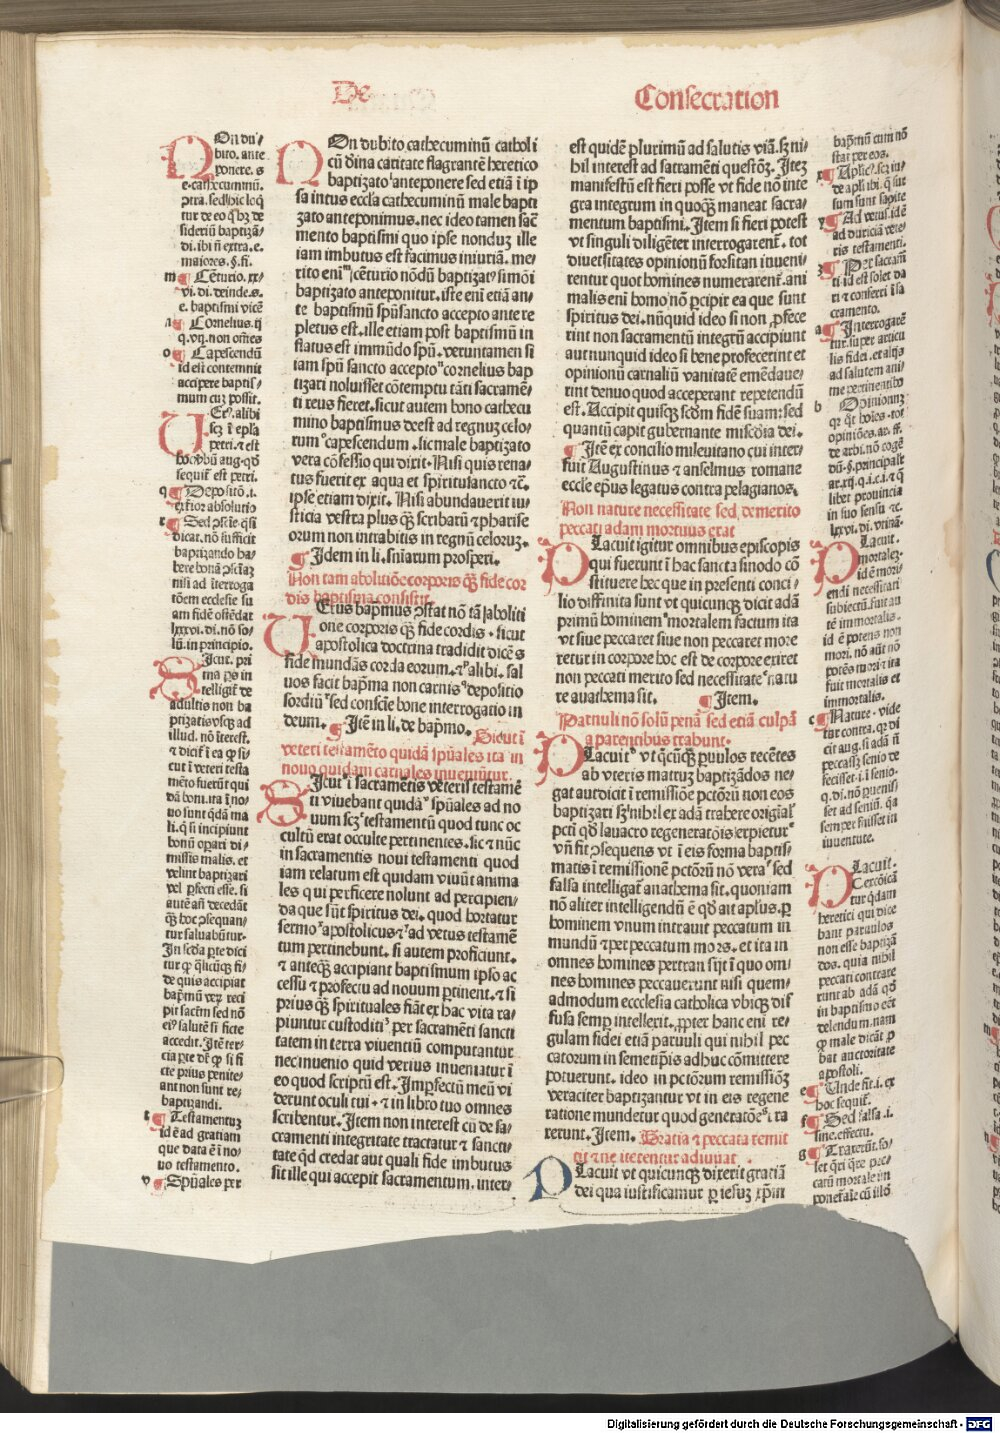 De
Consecration
On du/
bito. ante
ponere. s
e. cathecuminū.
ptra. sed hic loq̄
tur de eo q̄ hʒ de
siderium baptizā/
di. ibi n̄ extra. e.
maiores. §. fi.
m ¶ Cēturio. xx/
vi. di. deinde. s.
e. baptismi vicē
n ¶ Cornelius. ij
q. vij. non om̄es
o ¶ Capescendū
id est contemnit
accipere baptis/
mum cuʒ possit.
Et⁹. alibi
scʒ ī epła
petri. ⁊ est
hoc ꝟbū aug. qd̓
sequit̄ est petri.
q ¶ Depositō. i.
exterior absolutio
r ¶ Sed ꝯscīe. q̄si
dicat. nō sufficit
baptizando ha/
bere bonā ꝯsciāʒ
nisi ad īterroga
tōem ecclesie su
am fidē ostēdat
lxxvi. di. nō so/
lū. in principio.
Icut. pri
ma ꝑs in
telligit̄ de
adultis non ba
ptizatis vsqʒ ad
illud. nō īterest.
⁊ dicit̄ ī ea ꝙ si/
cut ī veteri testa
mēto fuerūt qui
dā boni. ita ī no/
uo sunt q̄dā ma
li. q̄ si incipiunt
bonū oꝑari di/
missis malis. et
velint baptizari
vel ꝑfecti esse. si
autē añ decedāt
q̄ʒ hoc ꝯsequan/
tur saluabūtur.
In scd̓a ꝑte dici
tur ꝙ q̄licūqʒ fi/
de quis accipiat
bap̄mū veꝝ reci
pit sacr̄m sed nō
ei⁹ salutē si ficte
accedit. Itē ter/
cia ꝑte dr̄ ꝙ si fi
cte prius penite/
ant non sunt re/
baptizandi.
t ¶ Testamentuʒ
id ē ad gratiam
que data ē ī no/
uo testamento.
v ¶ Spūales per
On dubito cathecuminū catholi
cū diīna caritate flagrantē heretico
baptizato anteponere sed etiā ī ip
sa intus eccła cathecuminū male bapti
zato anteponimus. nec ideo tamen sac̄
mento baptismi quo ipse nonduʒ ille
iam imbutus est facimus iniuriā. me/
rito eni cēturio nōdū baptizat⁹ simōi
baptizato anteponit̄. iste eni etiā an/
te baptismū spū sancto accepto ante re
pletus est. ille etiam post baptismū in
flatus est immūdo spū. veruntamen si
iam spū sancto accepto cornelius bap
tizari noluisset cōtemptu tāti sacramē/
ti reus fieret. sicut autem bono cathecu
mino baptismus deest ad regnuʒ celo/
rum capescendum. sic male baptizato
vera cōfessio qui dixit. Nisi quis rena/
tus fuerit ex aqua et spiritu sancto ⁊c̄.
ipse etiam dixit. Nisi abundauerit iu/
sticia vestra plus q̄ʒ scribarū ⁊ pharise
orum non intrabitis in regnū celoruʒ.
¶ Idem in li. sniarum prosperi.
Non tam abolutiōe corporis q̄ʒ fide cor
dis baptisma consistit.
Erus bap̄mus ꝯstat nō tā aboliti
one corporis q̄ʒ fide cordis. sicut
apostolica doctrina tradidit dicēs
fide mundās corda eorum. ⁊ alibi. sal
uos facit bap̄ma non carnis depositio
sordiū sed consciē bone interrogatio in
deum. ¶ Itē in li. de bap̄mo. Sicut ī
veteri testamēto quidā spūales ita in
nouo quidam carnales inueniūtur.
Icut ī sacramētis veteris testamē
ti viuebant quidā spūales ad no
uum scʒ testamentū quod tunc oc
cultū erat occulte pertinentes. sic ⁊ nūc
in sacramentis noui testamenti quod
iam relatum est quidam viuūt anima
les qui perficere nolunt ad percipien/
da que sūt spiritus dei. quod hortatur
sermo apostolicus ⁊ ad vetus testamē
tum pertinebunt. si autem proficiunt.
⁊ anteq̄ʒ accipiant baptismum ipso ac
cessu ⁊ profectu ad nouum ꝑtinent. ⁊ si
prius q̄ʒ spirituales fiāt ex hac vita ra/
piuntur custoditi per sacramēti sancti
tatem in terra viuentiū computantur
nec inuenio quid verius inueniatur ī
eo quod scriptū est. Imꝑfectū meū vi
derunt oculi tui. ⁊ in libro tuo omnes
scribentur. Item non interest cū de sa/
cramenti integritate tractatur ⁊ sancti/
tate qd̓ credat aut quali fide imbutus
sit ille qui accepit sacramentum. inter/
est quidē plurimū ad salutis viā. sʒ ni/
hil interest ad sacramēti questōʒ. Iteʒ
manifestū est fieri posse vt fide nō inte
gra integrum in quoqʒ maneat sacra/
mentum baptismi. Item si fieri potest
vt singuli diligēter interrogarent̄. tot
diuersitates opinionū forsitan inueni/
rentur quot homines numerarent̄. ani
malis eni homo nō ꝑcipit ea que sunt
spiritus dei. nūquid ideo si non ꝓfece
rint non sacramentū integrū accipiunt
aut nunquid ideo si bene profecerint et
opinionū carnaliū vanitatē emēdaue/
rint denuo quod acceperant repetendū
est. Accipit quisqʒ scd̓m fidē suam: sed
quantū capit gubernante miscd̓ia dei.
¶ Itē ex concilio mileuitano cui inter/
fuit Augustinus ⁊ anselmus romane
eccłe ep̄us legatus contra pelagianos.
Non nature necessitate sed demerito
peccati adam mortuus erat
Lacuit igitur omnibus episcopis
qui fuerunt ī hac sancta sinodo cō
stituere hec que in presenti conci/
lio diffinita sunt vt quicunqʒ dicit adā
primū hominem mortalem factum ita
vt siue peccaret siue non peccaret more
retur in corpore hoc est de corpore exiret
non peccati merito sed necessitate natu
re anathema sit. ¶ Item.
Paruuli nō solū penā sed etiā culpā
a parentibus trahunt.
Lacuit vt q̄cūqʒ ꝑuulos recētes
ab vteris matruʒ baptizādos ne/
gat aut dicit ī remissiōe pctōrū non eos
baptizari sʒ nihil ex adā trahere origiał
pcti qd̓ lauacro regeneratōis expietur
vn̄ fit ꝯsequens vt ī eis forma baptis/
matis ī remissionē pctōrū nō vera sed
falsa intelligat̄ anathema sit. quoniam
nō aliter intelligendū ē qd̓ ait apłus. ꝑ
hominem vnum intrauit peccatum in
mundū ⁊ per peccatum mors. et ita in
omnes homines pertransijt ī quo om/
nes homines peccauerunt nisi quem/
admodum ecclesia catholica vbiqʒ dif
fusa semꝑ intellexit. ꝓpter hanc eni re/
gulam fidei etiā paruuli qui nihil pec
catorum in semetip̄is adhuc cōmittere
potuerunt. ideo in pctōrum remissiōʒ
veraciter baptizantur vt in eis regene
ratione mundetur quod generatōe ⁹ tra
xerunt. Item. Gratia ⁊ peccata remit
tit ⁊ ne iterentur adiuuat.
Lacuit vt quicunqʒ dixerit gratiā
dei qua iustificamur ꝑ iesuʒ xp̄m
bap̄mū cum nō
stat per eos.
x ¶ Aplic⁹. scʒ in/
de apłi ibi. q̄ sūt
sursum sunt sapite
y ¶ Ad vetus. id ē
ad duriciā vete/
ris testamenti.
z ¶ Per sacram̄
ti. id est solet da
ri ⁊ conferri ī sa
cramento.
a ¶ Interrogarē
tur. super articu
lis fidei. et alijs
ad salutem ani/
me pertinentibꝰ
b Opinionuʒ
qr̄ q̄t hoīes. tot
opiniōes. ar. ff.
de arbi. nō cogē
dū. §. principałr
ar. xij. q. i. c. i. ⁊ q̄
libet prouincia
in suo sensu ⁊c.
lxxvi. di. vtinā.
Lacuit.
mortaleʒ.
id ē mori/
endi necessitati
subiectū. fuit au
tē immortalis.
id ē potens non
mori. nō aūt nō
potēs mori ⁊ ita
fuit mortalis et
immortalis.
c ¶ Nature. vide
tur contra. qr̄ di
cit aug. si adā n̄
peccassʒ senio de
fecisset. i. ī senio.
q. di. nō ꝑuenis/
set ad seniū. q̄a
semper fuisset in
iuuentute.
Lacuit.
Cercōicā
tur q̄dam
heretici qui dice
bant paruulos
non esse baptizā
dos. quia nihil
peccati contraxe
runt ab adā qd̓
in baptismo eēt
delendum. nam
ꝙ male dicāt ꝓ
bat auctoritate
apostoli.
e ¶ Unde fit. i. ex
hoc sequit̄.
f ¶ Sed falsa. i.
sine effectu.
g ¶ Traxerūt. so/
let q̄ri q̄re pec/
catū mortale in
ponetałr cū illō